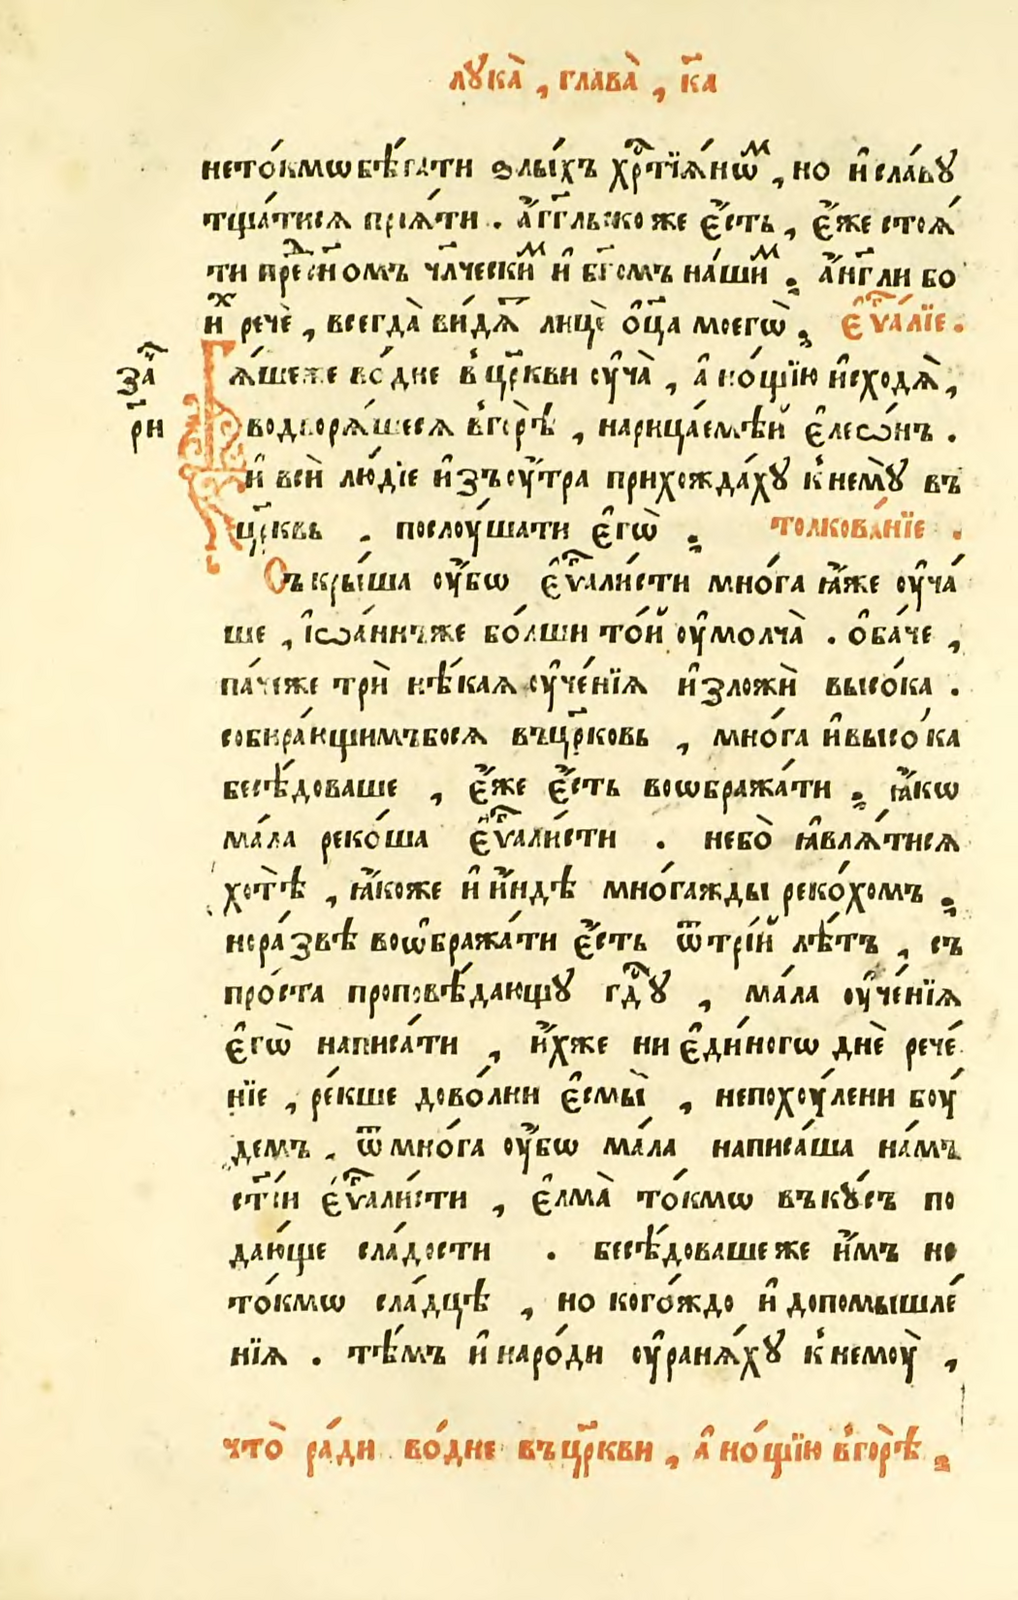 лꙋка̀ , глава̀ , к҃а
нето́кмѡбѣ́гати ѕлы́хъ хрⷭ҇тїѧ́нѡⷨ , но и҆сла́вꙋ
тща́тисѧ прїѧ́ти . а҆́гг҃льскоже є҆́сть , є҆́же стоѧ́
ти преⷣсно́мъ чл҃ческиⷨ и҆ бг҃омъ на́шиⷨ . а҆́нг҃ли бо
и҆ⷯ речѐ , всегда̀ ви́дѧⷮ лицѐ ѻ҆ц҃а моегѡ̀ . є҆ѵⷢ҇а́лїе .
за҆ⷱ
рⷯи
Бѧ́шеже во́дне в̾цр҃кви ᲂу҆ча̀ , а҆ но́щїю и҆сходѧ̀ ,
водворѧ́шесѧ в̾горѣ̀ , нарица́емѣй є҆леѡ́нъ .
и҆ всѝ лю́дїе и҆зъᲂу́тра прихожда́хꙋ к̾немꙋ̀ въ
цр҃квь . послоу́шати є҆гѡ̀ . толкова́нїе .
Съкры́ша ᲂу҆́бѡ є҆ѵⷢ҇али́сти мно́га ꙗ҆́же ᲂу҆ча́
ше , і҆ѡа́ннъже бо́лши то́й ᲂу҆молча̀ . ѻ҆ба́че ,
па́чеже трѝ нѣ́каѧ ᲂу҆че́нїѧ и҆зложѝ высо́ка .
собира́ющимъбосѧ въцр҃ковь , мно́га и҆высо́ка
бесѣ́доваше , є҆́же є҆́сть воѡбража́ти . ꙗ҆́кѡ
ма́ла реко́ша є҆ѵⷢ҇али́сти . небо̀ ꙗ҆влѧ́тисѧ
хотѣ̀ , ꙗ҆́коже и҆ и҆́ндѣ мно́гажды реко́хомъ .
нора́звѣ воѡ҆бража́ти є҆́сть ѿтрі́й лѣ́тъ , съ
про́ста проповѣ́дающꙋ гдⷭ҇ꙋ , ма́ла ᲂу҆че́нїѧ
є҆гѡ̀ написа́ти , и҆́хже ни є҆ди́ногѡ днѐ рече́
нїе , ре́кше дово́лни є҆смы̀ , непохоу́лени боу́
демъ . ѿмно́га ᲂу҆́бѡ ма́ла написа́ша на́мъ
ст҃і́и є҆ѵⷢ҇али́сти , є҆лма̀ то́кмѡ въкꙋ́съ по
даю́ще сла́дости . бесѣ́довашеже и҆́мъ не
то́кмѡ сла́дцѣ , но кого́ждо и҆ допомышле́
нїѧ . тѣ́мъ и҆ наро́ди ᲂу҆ранѧ́хꙋ к̾немоу̀ ,
что̀ ра́ди во́дне въцр҃кви , а҆ но́щїю в̾горѣ̀ .